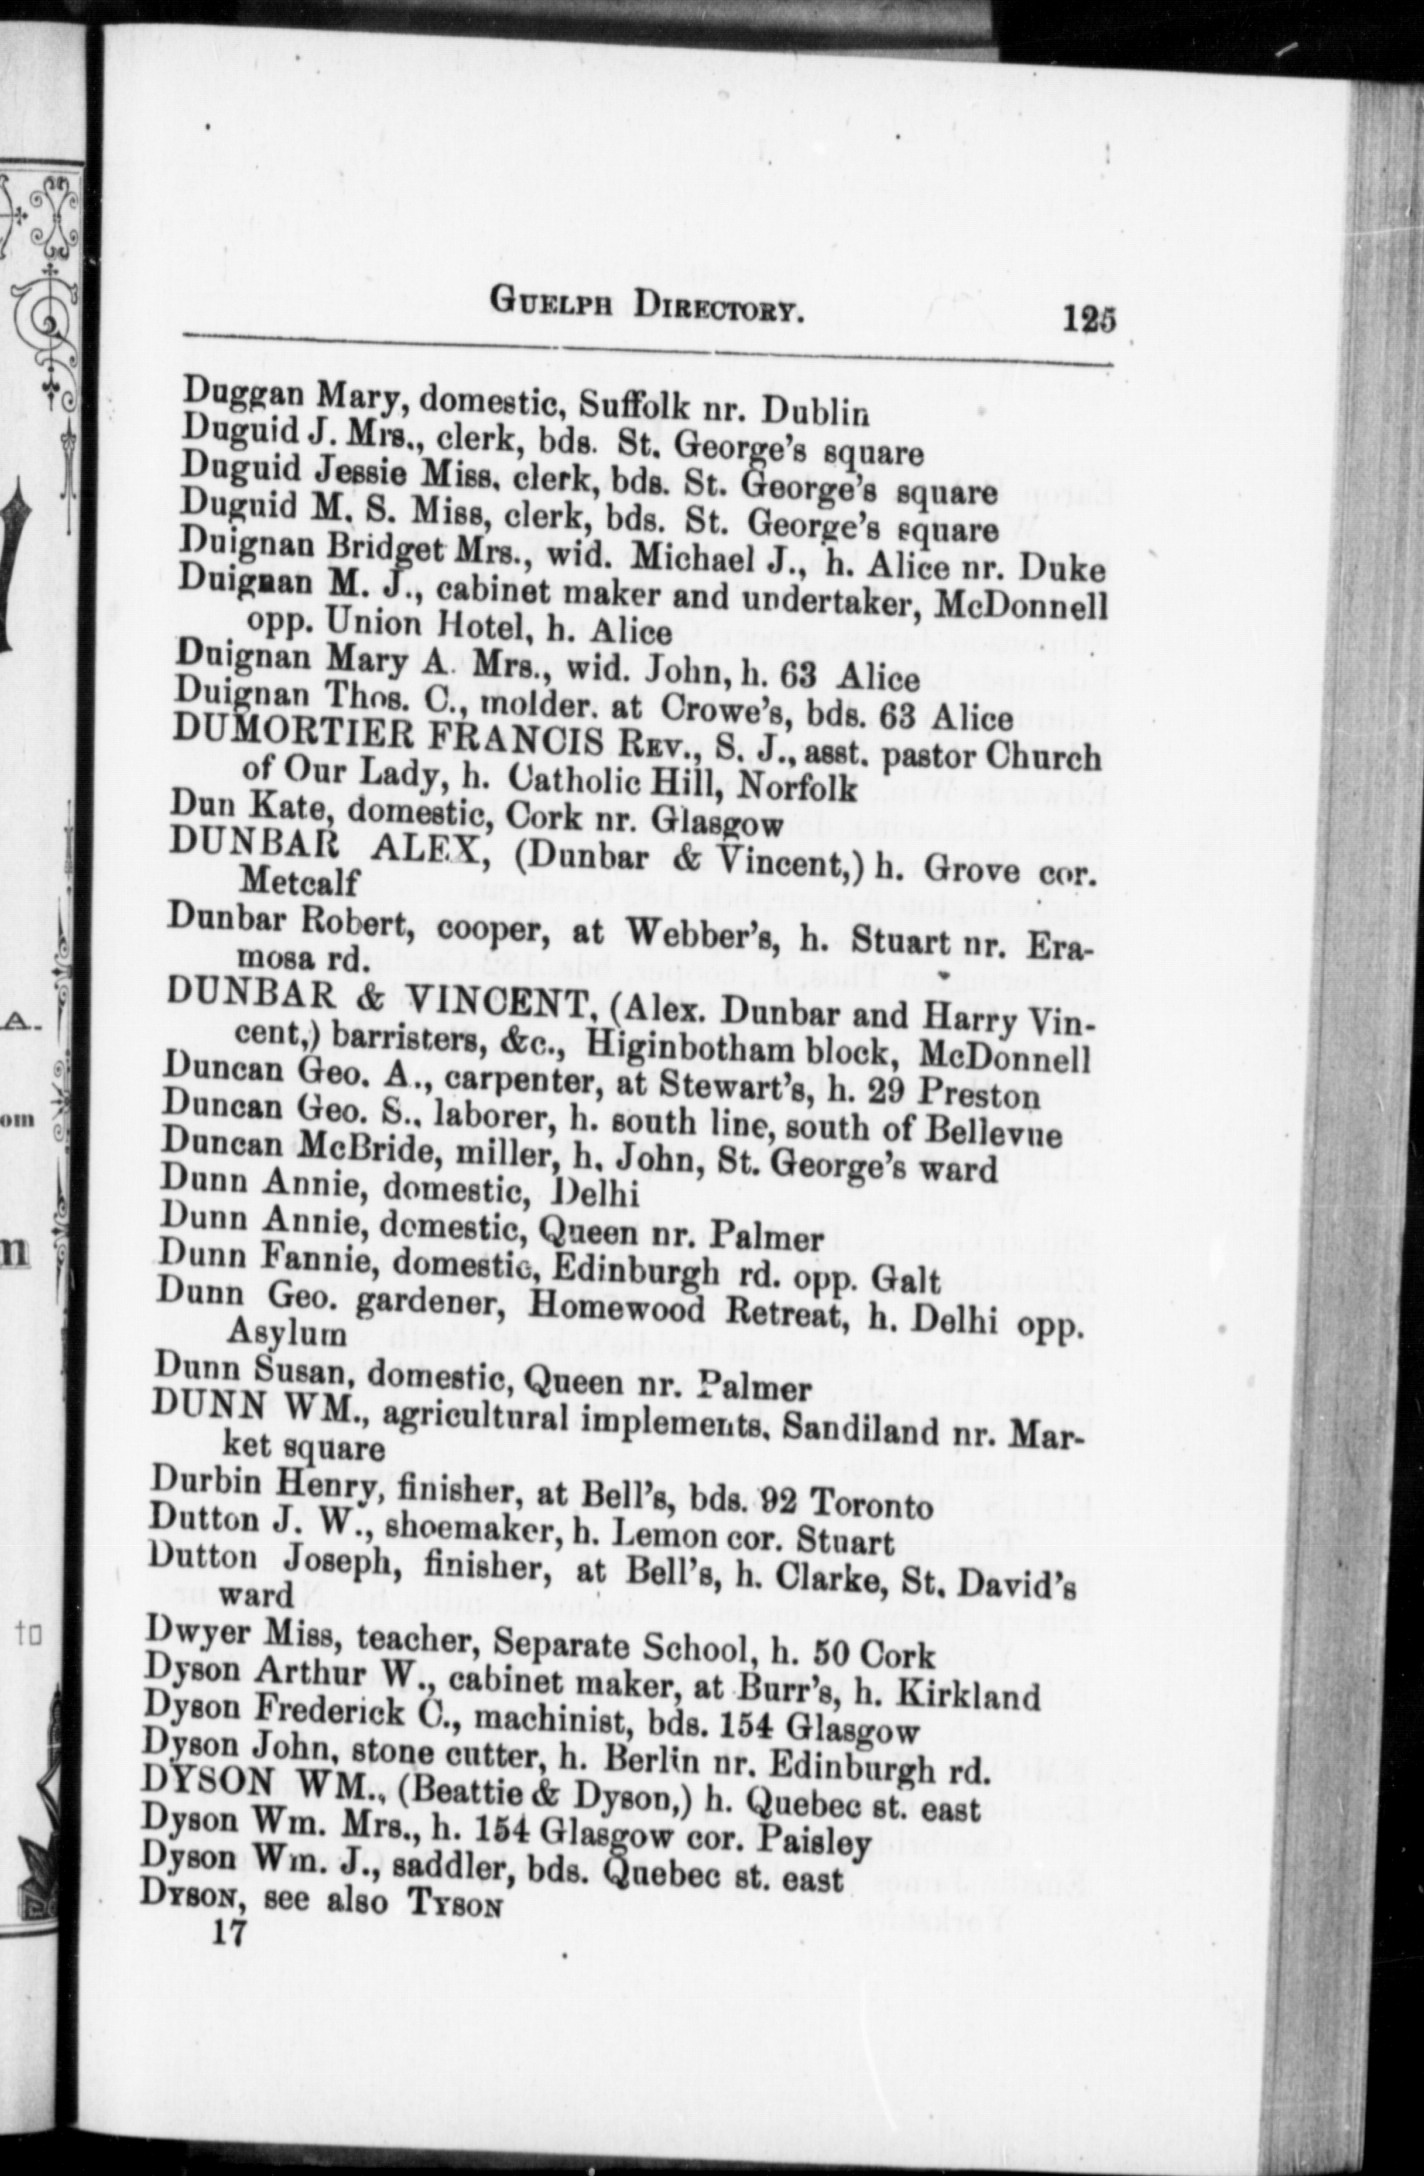 GUELPH DIRECTORY. 125
Duggan Mary, domestic, Suffolk nr. Dublin
Duguid J. Mrs., clerk, bds. St. George's square
Duguid Jessie Miss, clerk, bds. St. George's square
Duguid M. S. Miss, clerk, bds. St. George's square
Duignan Bridget Mrs., wid. Michael J., h. Alice nr. Duke
Duignan M. J., cabinet maker and undertaker, McDonnell
opp. Union Hotel, h. Alice
Duignan Mary A. Mrs., wid. John, h. 63 Alice
Duignan Thos. C., molder. at Crowe's, bds. 63 Alice
DUMORTIER FRANCIS REV., S. J., asst. pastor Church
of Our Lady, h. Catholic Hill, Norfolk
Dun Kate, domestic, Cork nr. Glasgow
DUNBAR ALEX, (Dunbar & Vincent,) h. Grove cor.
Metcalf
Dunbar Robert, cooper, at Webber's, h. Stuart nr. Era-
mosa rd.
DUNBAR & VINCENT, (Alex. Dunbar and Harry Vin-
cent,) barristers, &c., Higinbotham block, McDonnell
Duncan Geo. A., carpenter, at Stewart's, h. 29 Preston
Duncan Geo. S., laborer, h. south line, south of Bellevue
Duncan McBride, miller, h. John, St. George's ward
Dunn Annie, domestic, Delhi
Dunn Annie, domestic, Queen nr. Palmer
Dunn Fannie, domestic, Edinburgh rd. opp. Galt
Dunn Geo. gardener, Homewood Retreat, h. Delhi opp.
Asylum
Dunn Susan, domestic, Queen nr. Palmer
DUNN WM., agricultural implements, Sandiland nr. Mar-
ket square
Durbin Henry, finisher, at Bell's, bds. 92 Toronto
Dutton J. W., shoemaker, h. Lemon cor. Stuart
Dutton Joseph, finisher, at Bell's, h. Clarke, St. David's
ward
Dwyer Miss, teacher, Separate School, h. 50 Cork
Dyson Arthur W., cabinet maker, at Burr's, h. Kirkland
Dyson Frederick C., machinist, bds. 154 Glasgow
Dyson John, stone cutter, h. Berlin nr. Edinburgh rd.
DYSON WM., (Beattie & Dyson,) h. Quebec st. east
Dyson Wm. Mrs., h. 154 Glasgow cor. Paisley
Dyson Wm. J., saddler, bds. Quebec st. east
DYSON, see also TYSON
17